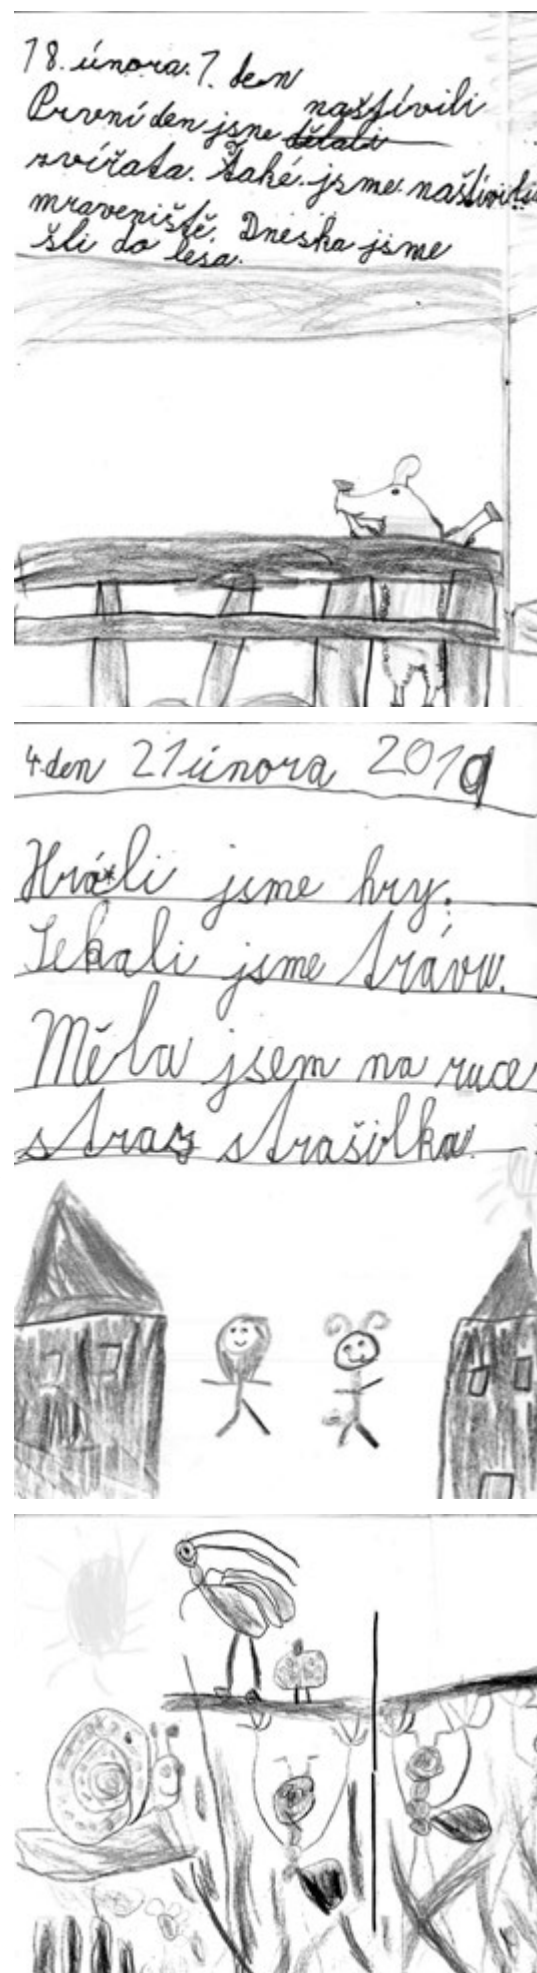 18. února. 1. den
První den jsne dělali naštívili
zvířata. Také jsme naštívili
mraveniště. Dneska jsme
šli do lesa.
4. den 21 února 2019
Hráli jsme hry.
Sekali jsme trávu.
Měla jsem na ruce
straz strašilka